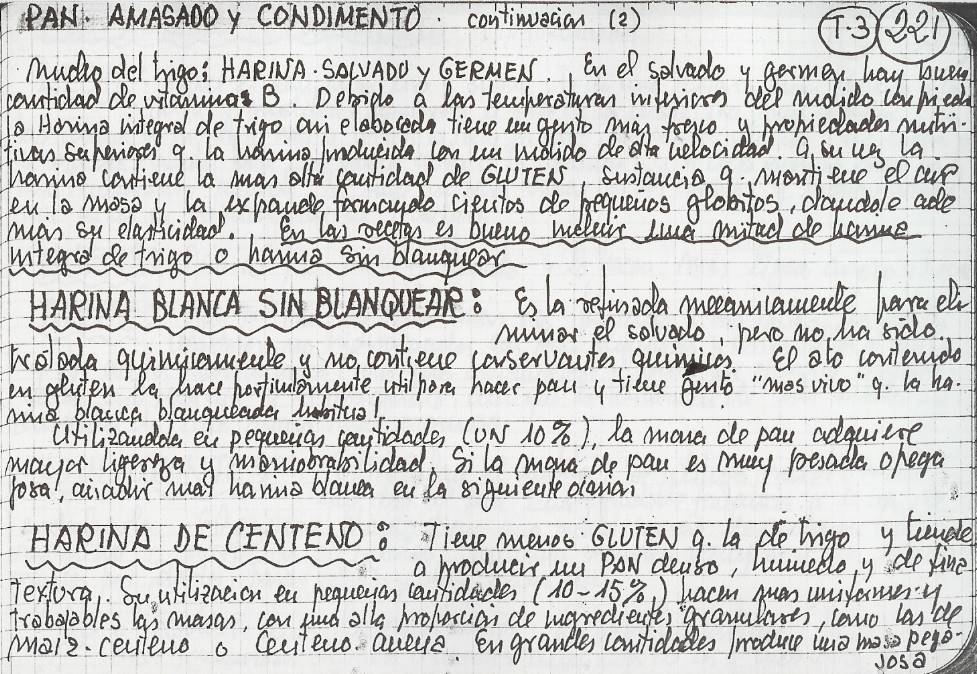 PAN. AMASADO y CONDIMENTO. continuacion (2) T-3 221
mucho del trigo: HARINA. SALVADO y GERMEN. En el salvado y germen hay buena
cantidad de vitaminas B. Debido a las temperaturas inferiores del molido con piedra
la Harina integral de trigo asi elaborada tiene un gusto más fresco y propiedades nutri-
tivas superiores q. la harina producida con un molido de alta velocidad. A su vez la
harina contiene la mas alta cantidad de GLUTEN, sustancia q. mantiene el aire
en la masa y la expande formando cientos de pequeños globitos, dandole ade
más su elasticidad. En las recetas es bueno incluir una mitad de harina
integral de trigo o harina sin blanquear
HARINA BLANCA SIN BLANQUEAR: Es la refinada mecanicamente para eli-
minar el salvado, pero no ha sido
tratada quimicamente y no contiene conservantes quimicos. El alto contenido
en gluten la hace particularmente util para hacer pan y tiene gusto "mas vivo" q. la ha-
rina blanca blanqueada habitual.
Utilizandola en pequeñas cantidades (UN 10%), la masa de pan adquiere
mayor ligereza y maniobrabilidad. Si la masa de pan es muy pesada o pega
josa, añadir mas harina blanca en la siguiente ocasion
HARINA DE CENTENO: Tiene menos GLUTEN q. la de trigo y tiende
a producir un PAN denso, humedo, y de fina
textura. Su utilizacion en pequeñas cantidades (10-15%) hacen mas uniformes y
trabajables las masas, con una alta proporcion de ingredientes granulares, como las de
maiz-centeno o centeno-avena. En grandes cantidades produce una masa pega-
josa